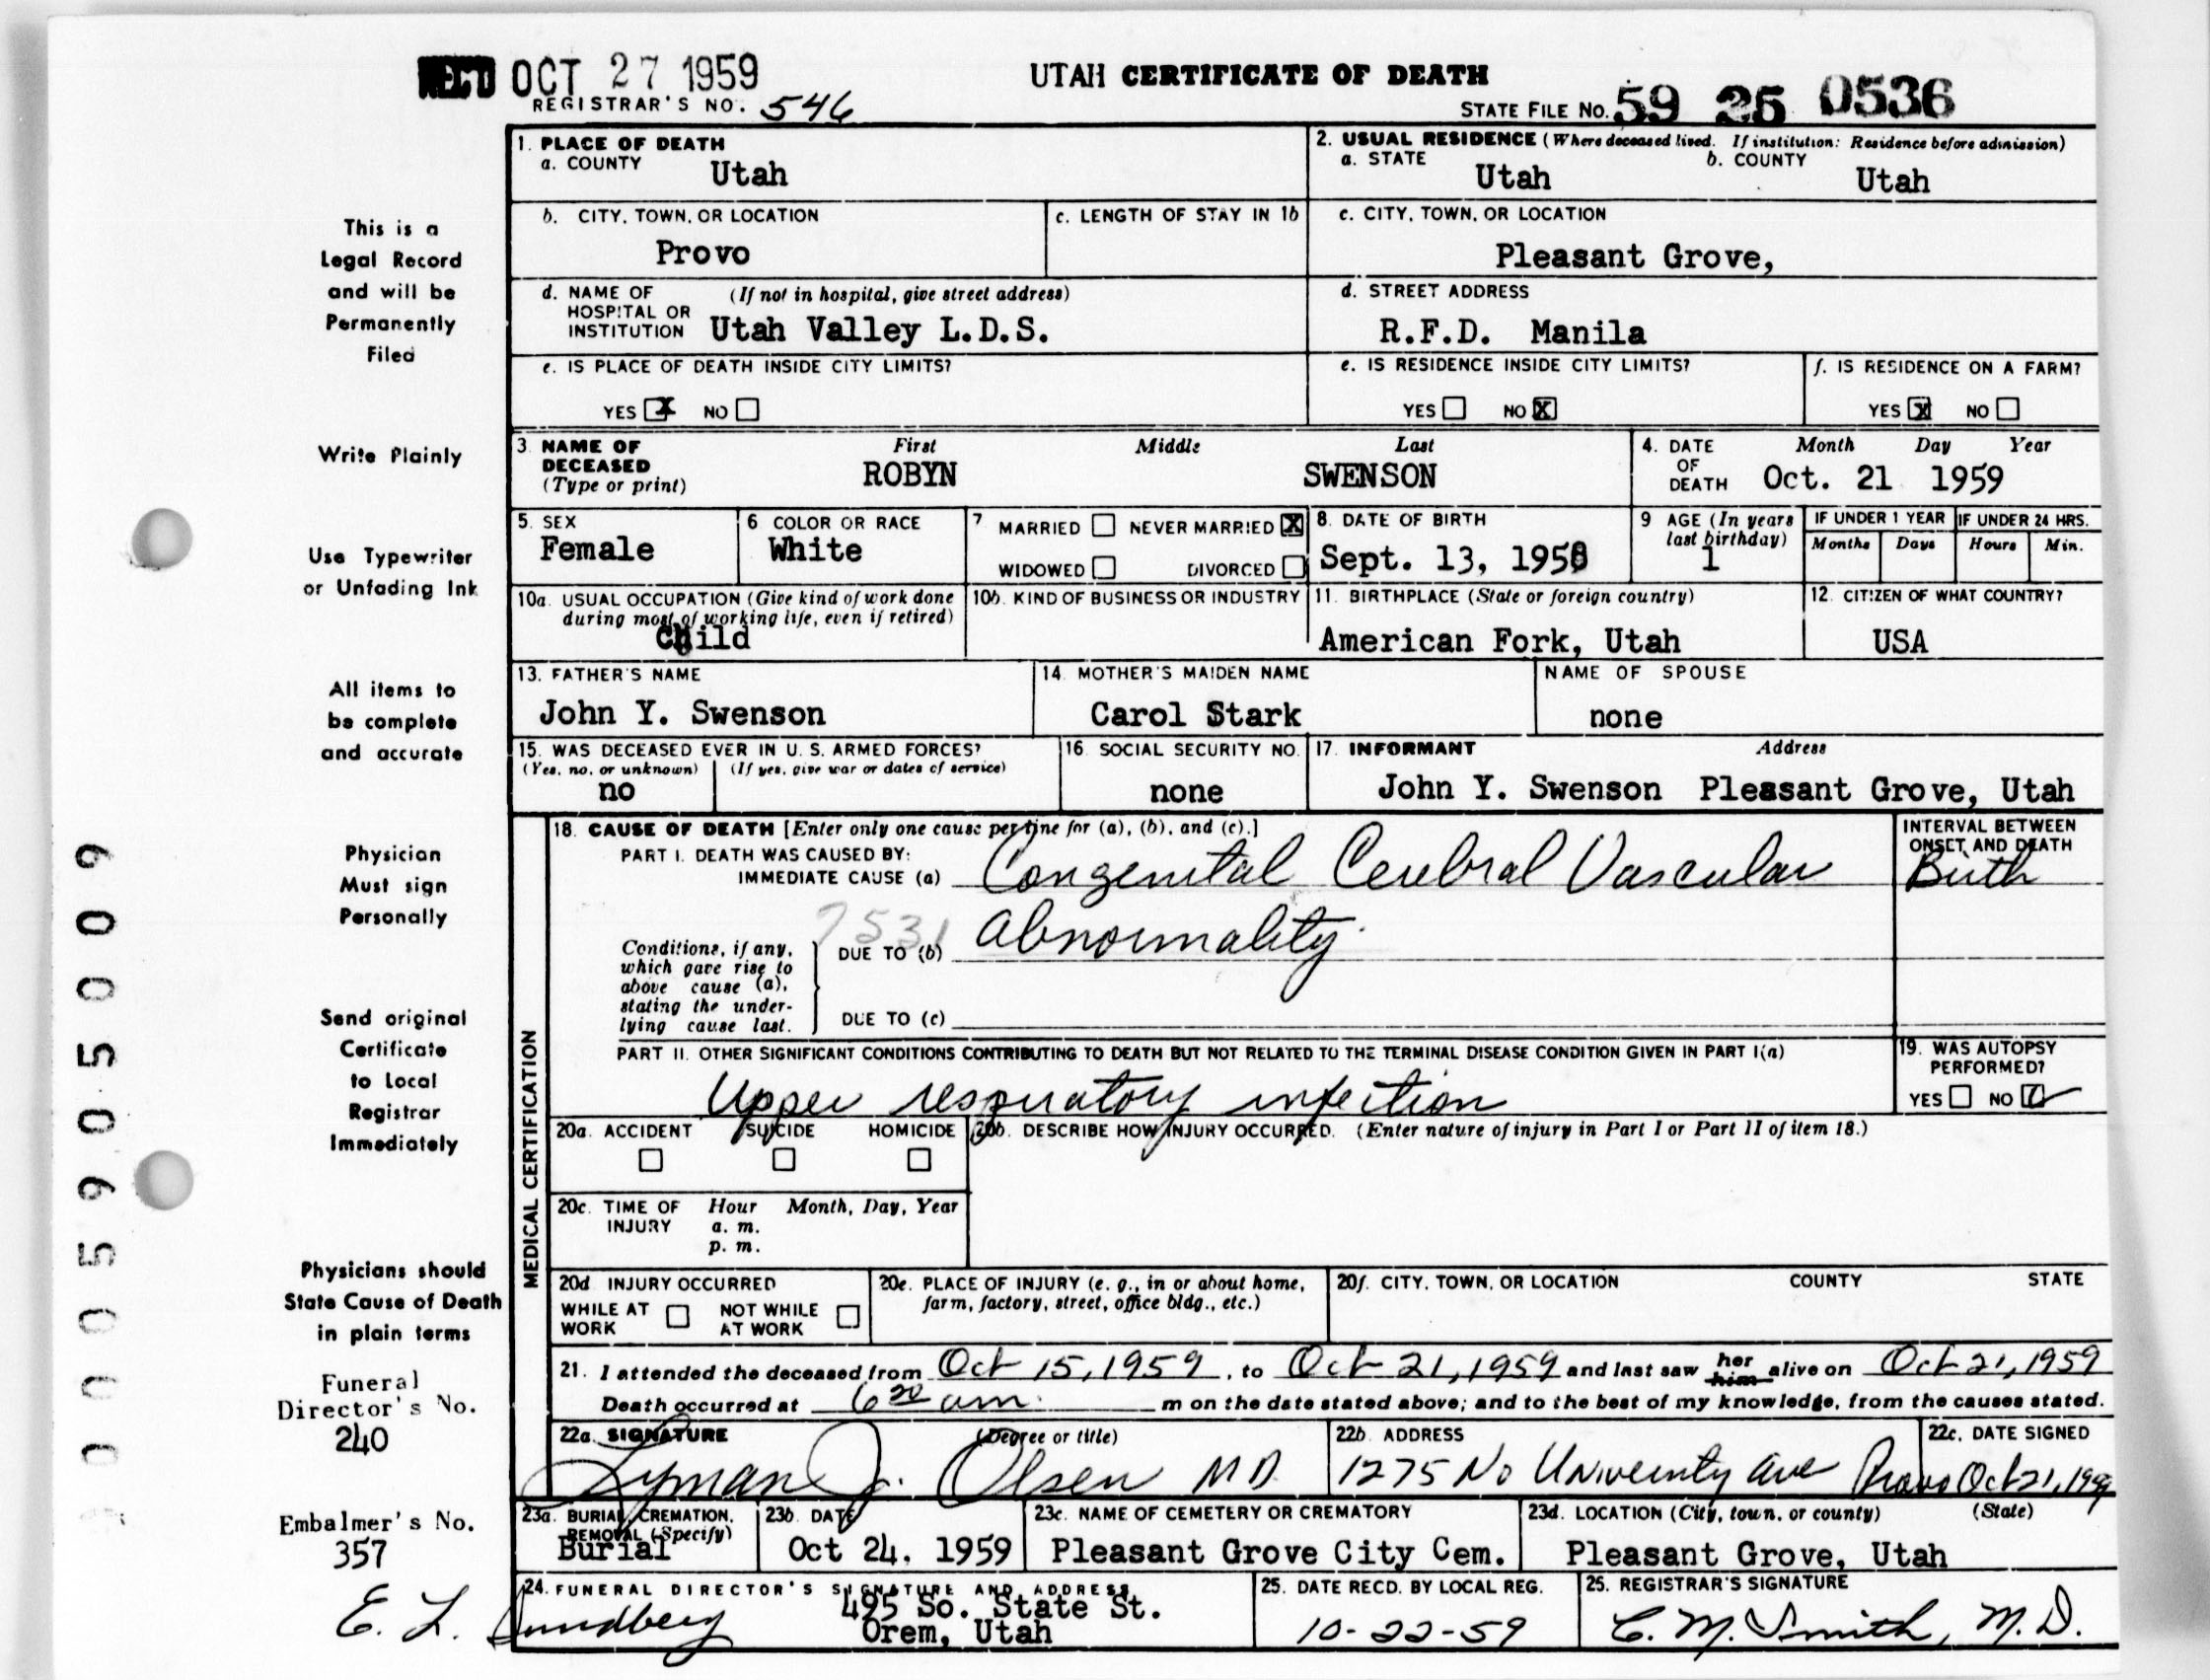 REC'D OCT 27 1959
UTAH CERTIFICATE OF DEATH
REGISTRAR'S NO. 546
STATE FILE NO. 59 25 0536
1. PLACE OF DEATH
a. COUNTY Utah
2. USUAL RESIDENCE (Where deceased lived. If institution: Residence before admission)
a. STATE Utah b. COUNTY Utah
b. CITY, TOWN, OR LOCATION Provo
c. LENGTH OF STAY IN 1b
c. CITY, TOWN, OR LOCATION Pleasant Grove,
d. NAME OF HOSPITAL OR INSTITUTION (If not in hospital, give street address) Utah Valley L.D.S.
d. STREET ADDRESS R.F.D. Manila
e. IS PLACE OF DEATH INSIDE CITY LIMITS?
YES X NO
e. IS RESIDENCE INSIDE CITY LIMITS?
YES NO X
f. IS RESIDENCE ON A FARM?
YES X NO
3. NAME OF DECEASED (Type or print) First Middle Last
ROBYN SWENSON
4. DATE OF DEATH Month Day Year
Oct. 21 1959
5. SEX Female
6 COLOR OR RACE White
7 MARRIED NEVER MARRIED X
WIDOWED DIVORCED
8. DATE OF BIRTH Sept. 13, 1958
9 AGE (In years last birthday) 1
IF UNDER 1 YEAR Months Days
IF UNDER 24 HRS. Hours Min.
10a. USUAL OCCUPATION (Give kind of work done during most of working life, even if retired)
Child
10b. KIND OF BUSINESS OR INDUSTRY
11. BIRTHPLACE (State or foreign country)
American Fork, Utah
12. CITIZEN OF WHAT COUNTRY?
USA
13. FATHER'S NAME
John Y. Swenson
14. MOTHER'S MAIDEN NAME
Carol Stark
NAME OF SPOUSE
none
15. WAS DECEASED EVER IN U. S. ARMED FORCES?
(Yes, no, or unknown) (If yes, give war or dates of service)
no
16. SOCIAL SECURITY NO.
none
17. INFORMANT Address
John Y. Swenson Pleasant Grove, Utah
MEDICAL CERTIFICATION
18. CAUSE OF DEATH [Enter only one cause per line for (a), (b), and (c).]
PART I. DEATH WAS CAUSED BY:
IMMEDIATE CAUSE (a) Congenital Cerebral Vascular
INTERVAL BETWEEN ONSET AND DEATH
Birth
7531
Conditions, if any, which gave rise to above cause (a), stating the underlying cause last.
DUE TO (b) Abnormality.
DUE TO (c)
PART II. OTHER SIGNIFICANT CONDITIONS CONTRIBUTING TO DEATH BUT NOT RELATED TO THE TERMINAL DISEASE CONDITION GIVEN IN PART I(a)
Upper respiratory infection
19. WAS AUTOPSY PERFORMED?
YES NO
20a. ACCIDENT SUICIDE HOMICIDE
20b. DESCRIBE HOW INJURY OCCURRED. (Enter nature of injury in Part I or Part II of item 18.)
20c. TIME OF INJURY Hour Month, Day, Year
a. m.
p. m.
20d INJURY OCCURRED
WHILE AT WORK NOT WHILE AT WORK
20e. PLACE OF INJURY (e. g., in or about home, farm, factory, street, office bldg., etc.)
20f. CITY, TOWN, OR LOCATION COUNTY STATE
21. I attended the deceased from Oct 15, 1959, to Oct 21, 1959 and last saw her him alive on Oct 21, 1959
Death occurred at 6 20 am. m on the date stated above; and to the best of my knowledge, from the causes stated.
22a. SIGNATURE (Degree or title)
Lyman J. Olsen MD
22b. ADDRESS
1275 No University Ave Provo
22c. DATE SIGNED
Oct 21, 1959
23a. BURIAL, CREMATION, REMOVAL (Specify)
Burial
23b. DATE
Oct 24, 1959
23c. NAME OF CEMETERY OR CREMATORY
Pleasant Grove City Cem.
23d. LOCATION (City, town, or county) (State)
Pleasant Grove, Utah
24. FUNERAL DIRECTOR'S SIGNATURE AND ADDRESS
E. L. Sundberg
495 So. State St.
Orem, Utah
25. DATE RECD. BY LOCAL REG.
10-22-59
25. REGISTRAR'S SIGNATURE
C. M. Smith, M.D.
This is a
Legal Record
and will be
Permanently
Filed
Write Plainly
Use Typewriter
or Unfading Ink
All items to
be complete
and accurate
Physician
Must sign
Personally
Send original
Certificate
to Local
Registrar
Immediately
Physicians should
State Cause of Death
in plain terms
Funeral
Director's No.
240
Embalmer's No.
357
0005905009